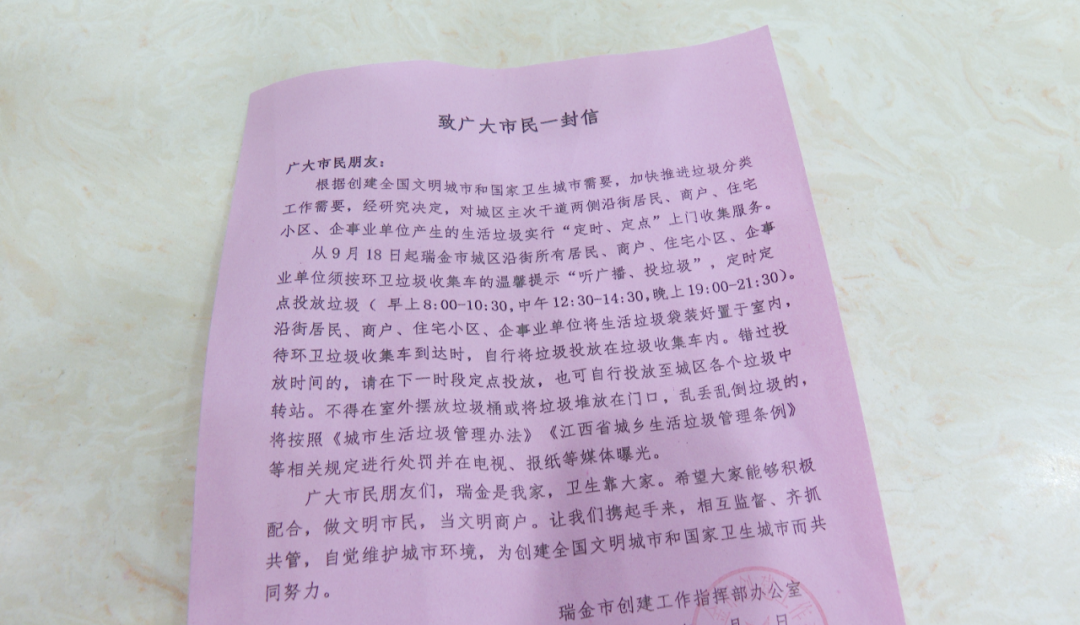 致广大市民一封信
广大市民朋友：
根据创建全国文明城市和国家卫生城市需要，加快推进垃圾分类
工作需要，经研究决定，对城区主次干道两侧沿街居民、商户、住宅
小区、企事业单位产生的生活垃圾实行“定时、定点”上门收集服务。
从9月18日起瑞金市城区沿街所有居民、商户、住宅小区、企事
业单位须按环卫垃圾收集车的温馨提示“听广播、投垃圾”，定时定
点投放垃圾（ 早上8:00-10:30,中午12:30-14:30,晚上19:00-21:30）。
沿街居民、商户、住宅小区、企事业单位将生活垃圾袋装好置于室内，
待环卫垃圾收集车到达时，自行将垃圾投放在垃圾收集车内。错过投
放时间的，请在下一时段定点投放，也可自行投放至城区各个垃圾中
转站。不得在室外摆放垃圾桶或将垃圾堆放在门口，乱丢乱倒垃圾的，
将按照《城市生活垃圾管理办法》《江西省城乡生活垃圾管理条例》
等相关规定进行处罚并在电视、报纸等媒体曝光。
广大市民朋友们，瑞金是我家，卫生靠大家。希望大家能够积极
配合，做文明市民，当文明商户。让我们携起手来，相互监督、齐抓
共管，自觉维护城市环境，为创建全国文明城市和国家卫生城市而共
同努力。
瑞金市创建工作指挥部办公室
月 日